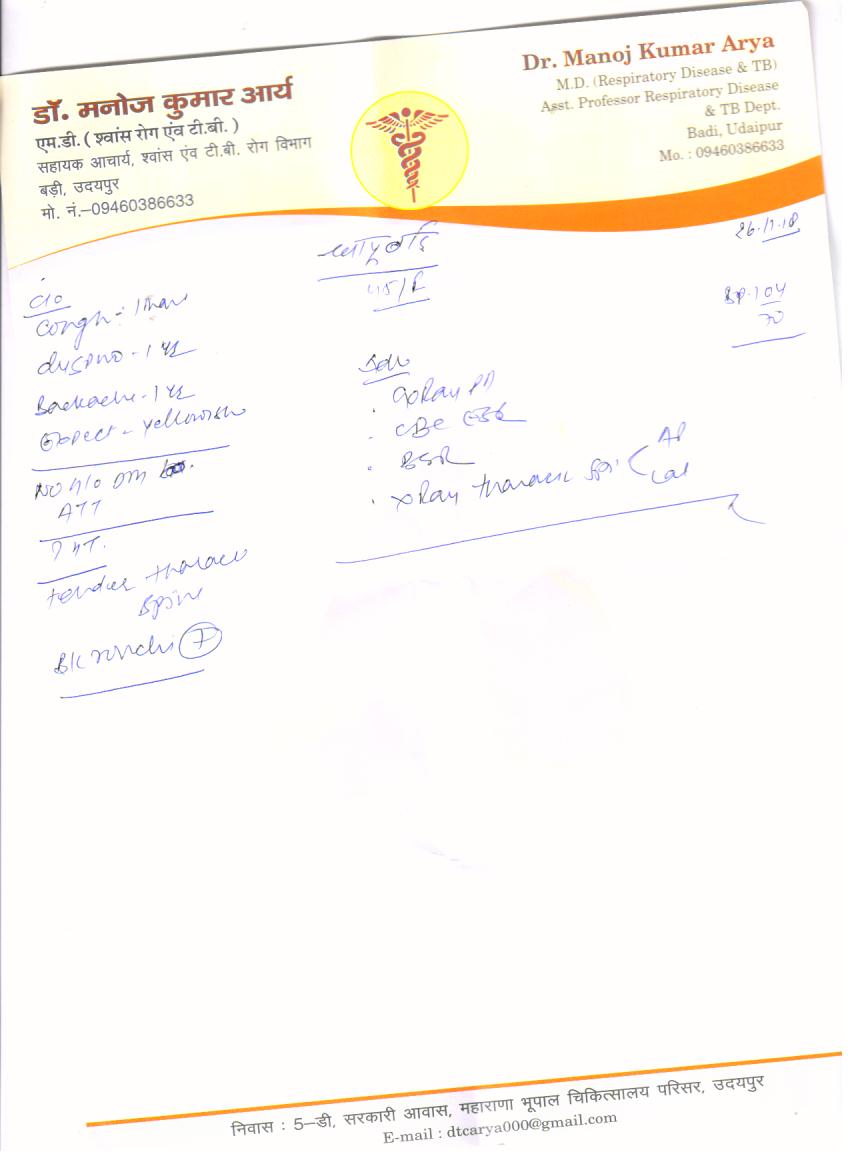 डॉ. मनोज कुमार आर्य
एम.डी. ( श्वांस रोग एंव टी.बी. )
सहायक आचार्य, श्वांस एंव टी.बी. रोग विभाग
बड़ी, उदयपुर
मो. नं.–09460386633
Dr. Manoj Kumar Arya
M.D. (Respiratory Disease & TB)
Asst. Professor Respiratory Disease
& TB Dept.
Badi, Udaipur
Mo. : 09460386633
45/F
BP. 104
70
C/o
Cough -
- 1 yr
Backache - 1 yr
Expect - Yellowish
No H/o DM
ATT
tender thorac
Spine
B/L ronchi +
Adv
XRay PA
CBC ESR
BSR
XRay thoracic AP
Lat
निवास : 5–डी, सरकारी आवास, महाराणा भूपाल चिकित्सालय परिसर, उदयपुर
E-mail : dtcarya000@gmail.com